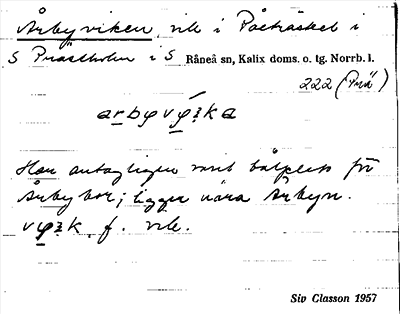 Årbyviken, vik i Påträsket i
S Prästholm i S Råneå sn, Kalix doms. o. tg. Norrb. l.
222 (Prä)
Har antagligen varit båtplats för
Årbybor; ligger nära Årbyn.
f. vik.
Siv Classon 1957